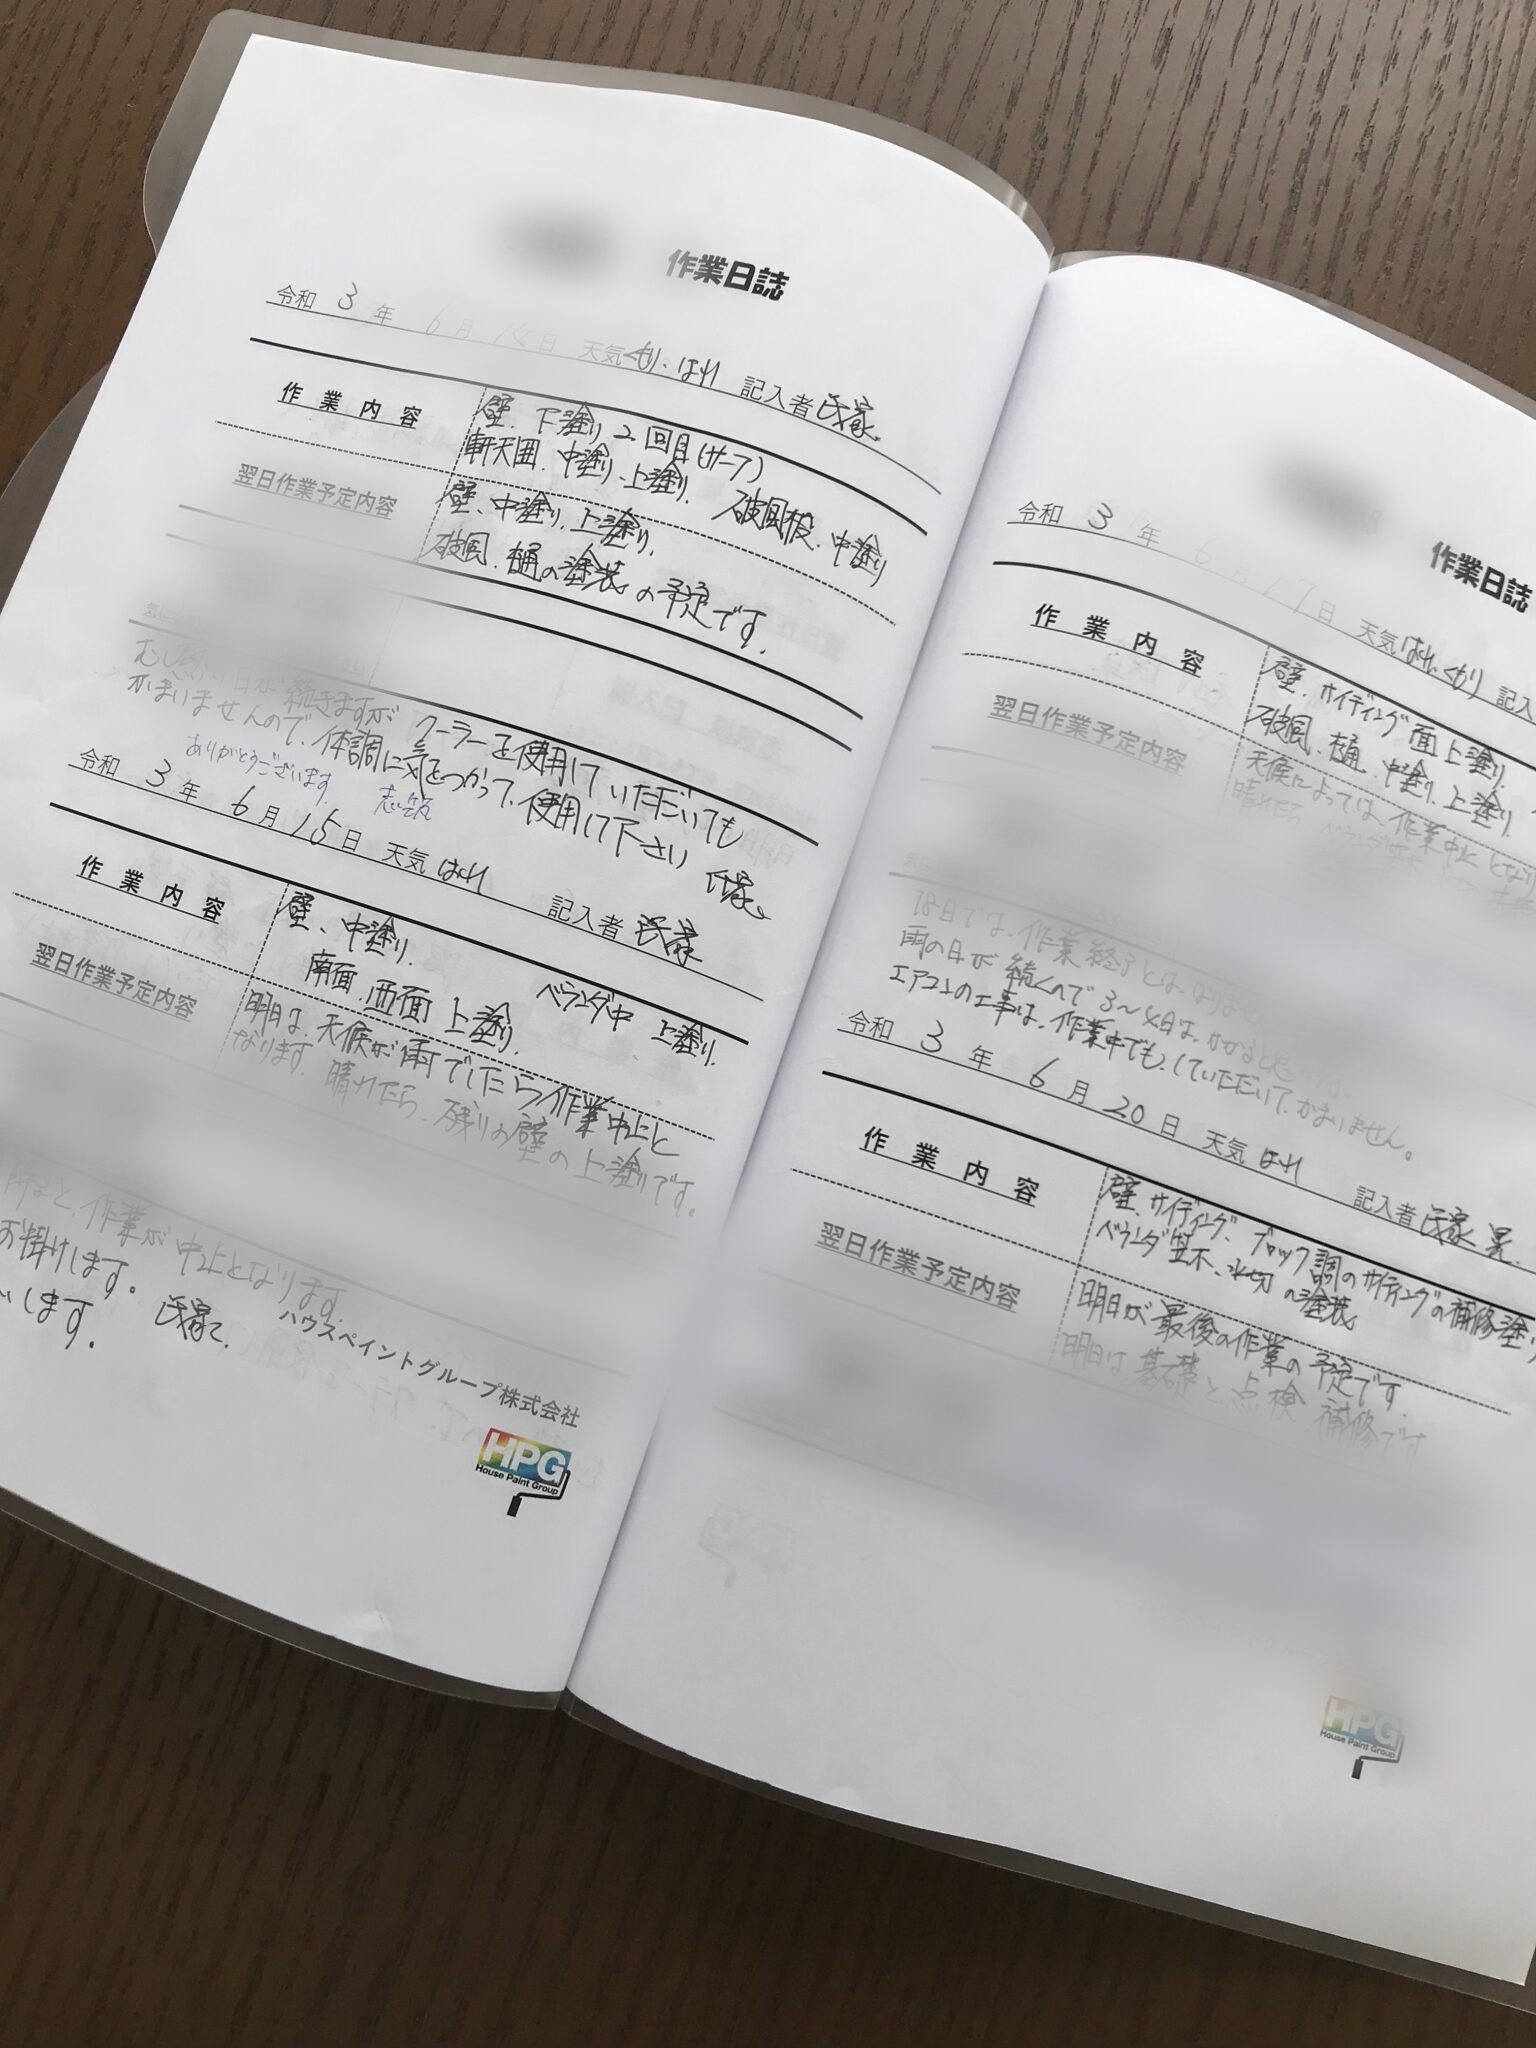 作業日誌
令和 3 年 6 月 14 日 天気 くもり、はれ 記入者 氏家
作業内容
壁、下塗り2回目(サーフ)
軒天囲、中塗り、上塗り、破風板、中塗り
翌日作業予定内容
壁、中塗り、上塗り、
破風、樋の塗装の予定です。
むし暑い日が続きますが クーラーを使用していただいても
かまいませんので、体調に気をつかって、使用して下さい 氏家
ありがとうございます 志筑
令和 3 年 6 月 15 日 天気 はれ 記入者 氏家
作業内容
壁、中塗り、 ベランダ中 上塗り、
南面、西面 上塗り、
翌日作業予定内容
明日は、天候が雨でしたら作業中止と
なります。晴れたら、残りの壁の上塗りです。
作業が中止となります。
お掛けします。 氏家
します。
ハウスペイントグループ株式会社
HPG
House Paint Group
作業日誌
令和 3 年 6 月 日 天気 はれ、くもり 記入
作業内容
壁、サイディング面上塗り、
破風、樋、中塗り、上塗り
翌日作業予定内容
天候によっては、作業中止となり
晴れたら、ベランダ
18日では、作業終了とは、なりません
雨の日が続くので3〜4日は、かかると思
エアコンの工事は、作業中でも、していただいて、かまいません。
令和 3 年 6 月 20 日 天気 はれ 記入者 氏家 晃
作業内容
壁、サイディング、ブロック調のサイディングの補修塗り
ベランダ笠木、水切の塗装
翌日作業予定内容
明日が最後の作業の予定です。
明日は基礎と点検、補修です
HPG
House Paint Group